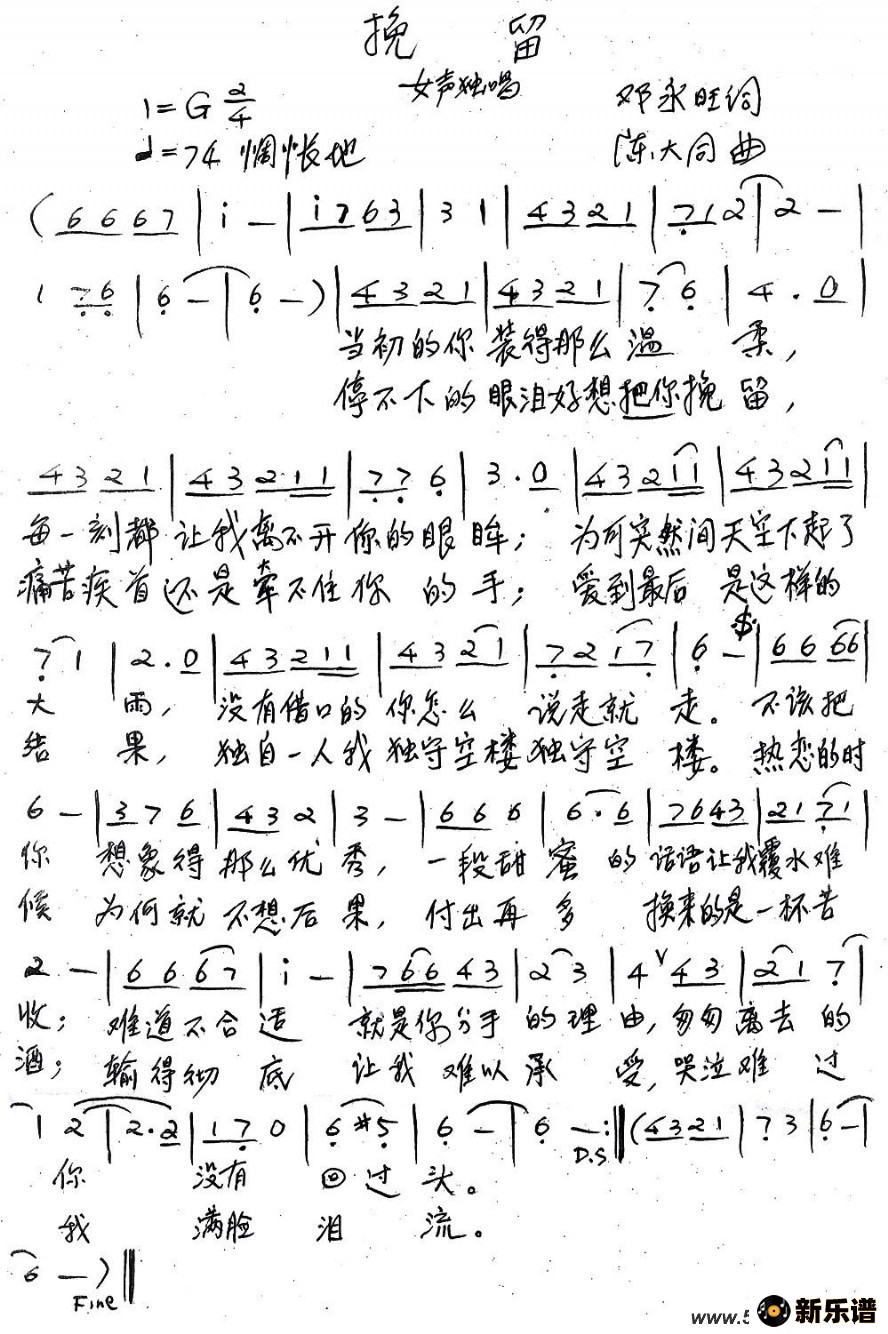 挽 留
女声独唱
1=G 2/4 邓永旺词
♩=74 惆怅地 陈大同曲
( 6 6 6 7 | i — | i 7 6 3 | 3 1 | 4 3 2 1 | 7 1 2 | 2 — |
1 7 6 | 6 — | 6 — ) | 4 3 2 1 | 4 3 2 1 | 7 6 | 4 . 0 |
当初的你 装得那么 温 柔，
停不下的眼泪好想把你挽留，
4 3 2 1 | 4 3 2 1 1 | 7 7 6 | 3 . 0 | 4 3 2 1 1 | 4 3 2 1 1 |
每一刻都 让我离不开你的眼 眸； 为何突然间天空下起了
痛苦疾首还是牵不住你 的 手； 爱到最后 是这样的
7 1 | 2 . 0 | 4 3 2 1 1 | 4 3 2 1 | 7 2 1 7 | 6 — | 6 6 6 6 |
大 雨， 没有借口的你怎么 说走就 走。 不该把
结 果， 独自一人我独守空楼独守空 楼。 热恋的时
6 — | 3 7 6 | 4 3 2 | 3 — | 6 6 6 | 6 . 6 | 7 6 4 3 | 2 1 7 1 |
你 想象得 那么优 秀， 一段甜 蜜 的 话语让我覆水难
候 为何就 不想后 果， 付出再 多 换来的是一杯苦
2 — | 6 6 6 7 | i — | 7 6 6 4 3 | 2 3 | 4 ∨ 4 3 | 2 1 7 |
收； 难道不合 适 就是你分手 的 理 由， 匆匆 离去 的
酒； 输得彻 底 让我 难以 承 受， 哭泣难 过
1 2 | 2 . 2 | 1 7 0 | 6 #5 | 6 — | 6 — :‖ ( 4 3 2 1 | 7 3 | 6 — |
D.S
你 没有 回 过 头。
我 满脸 泪 流。
6 — ) ‖
Fine
www.5 新乐谱